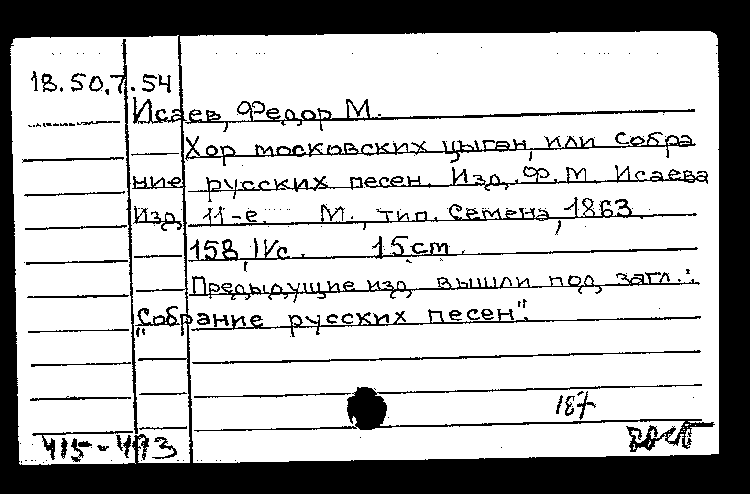 18.50.7.54
Исаев, Федор М.
Хор московских цыган, или Собра
ние русских песен. Изд. Ф.М. Исаева
Изд. 11-е. М., тип. Семена, 1863.
158, IV с. 15 cm.
Предыдущие изд. вышли под загл.:
"Собрание русских песен".
187
415-493